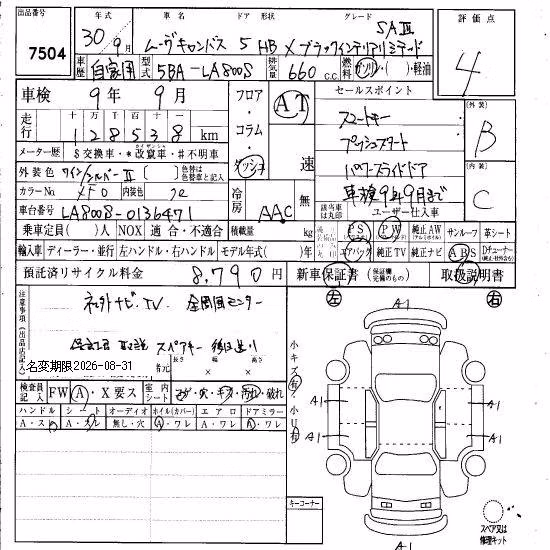 出品番号 7504
年式 30年 9月
車名 ムーヴキャンバス
ドア 形状 5 HB
グレード Xブラックインテリアリミテッド SAⅢ
評価点 4
車歴 自家用
型式 5BA-LA800S
排気量 660 c.c.
燃料 ガソリン・( )・軽油
車検 9年 9月
走行 十 万 千 百 十 一
1 2 8 5 3 8 km
メーター歴 $交換車・*改竄車・#不明車
フロア・コラム・ダッシュ
AT 速
外装色 ワイン/シルバーⅡ 色替は色替車と記入
カラーNo. XF0 内装色
車台番号 LA800S-0136471
冷房 AAC 無
セールスポイント
スマートキー
プッシュスタート
パワースライドドア
車検9年9月まで
外装 B
内装 C
該当車は丸印 ユーザー仕入車
乗車定員( )人 NOX 適合・不適合 積載量 kg
PS PW 純正AW サンルーフ 革シート
輸入車 ディーラー・並行 左ハンドル・右ハンドル モデル年式( )年
エアバック 純正TV 純正ナビ ABS Dチューナー
預託済リサイクル料金 8,790円
新車保証書 取扱説明書
注意事項(出品店記入)
社外ナビ・TV 全周囲モニター
保証書 取説 スペアキー 後日送り
名変期限2026-08-31
長さ × 幅 × 高さ
検査員記入 FW A・X要ス 室内シート コゲ・穴・キズ・汚れ・破れ
ハンドル シート オーディオ ホイル(カバー) エアロ ドアミラー
A・スレ A・スレ 無し・穴 A・ワレ A・ワレ A・ワレ
キーコーナー
小キズ有 小U有
左 右
A1
A1 A1
A1 A1
A1
スペア又は修理キット